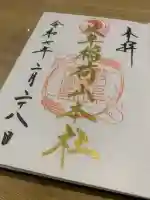 奉拝
稲荷山本社
令和七年二月二十八日